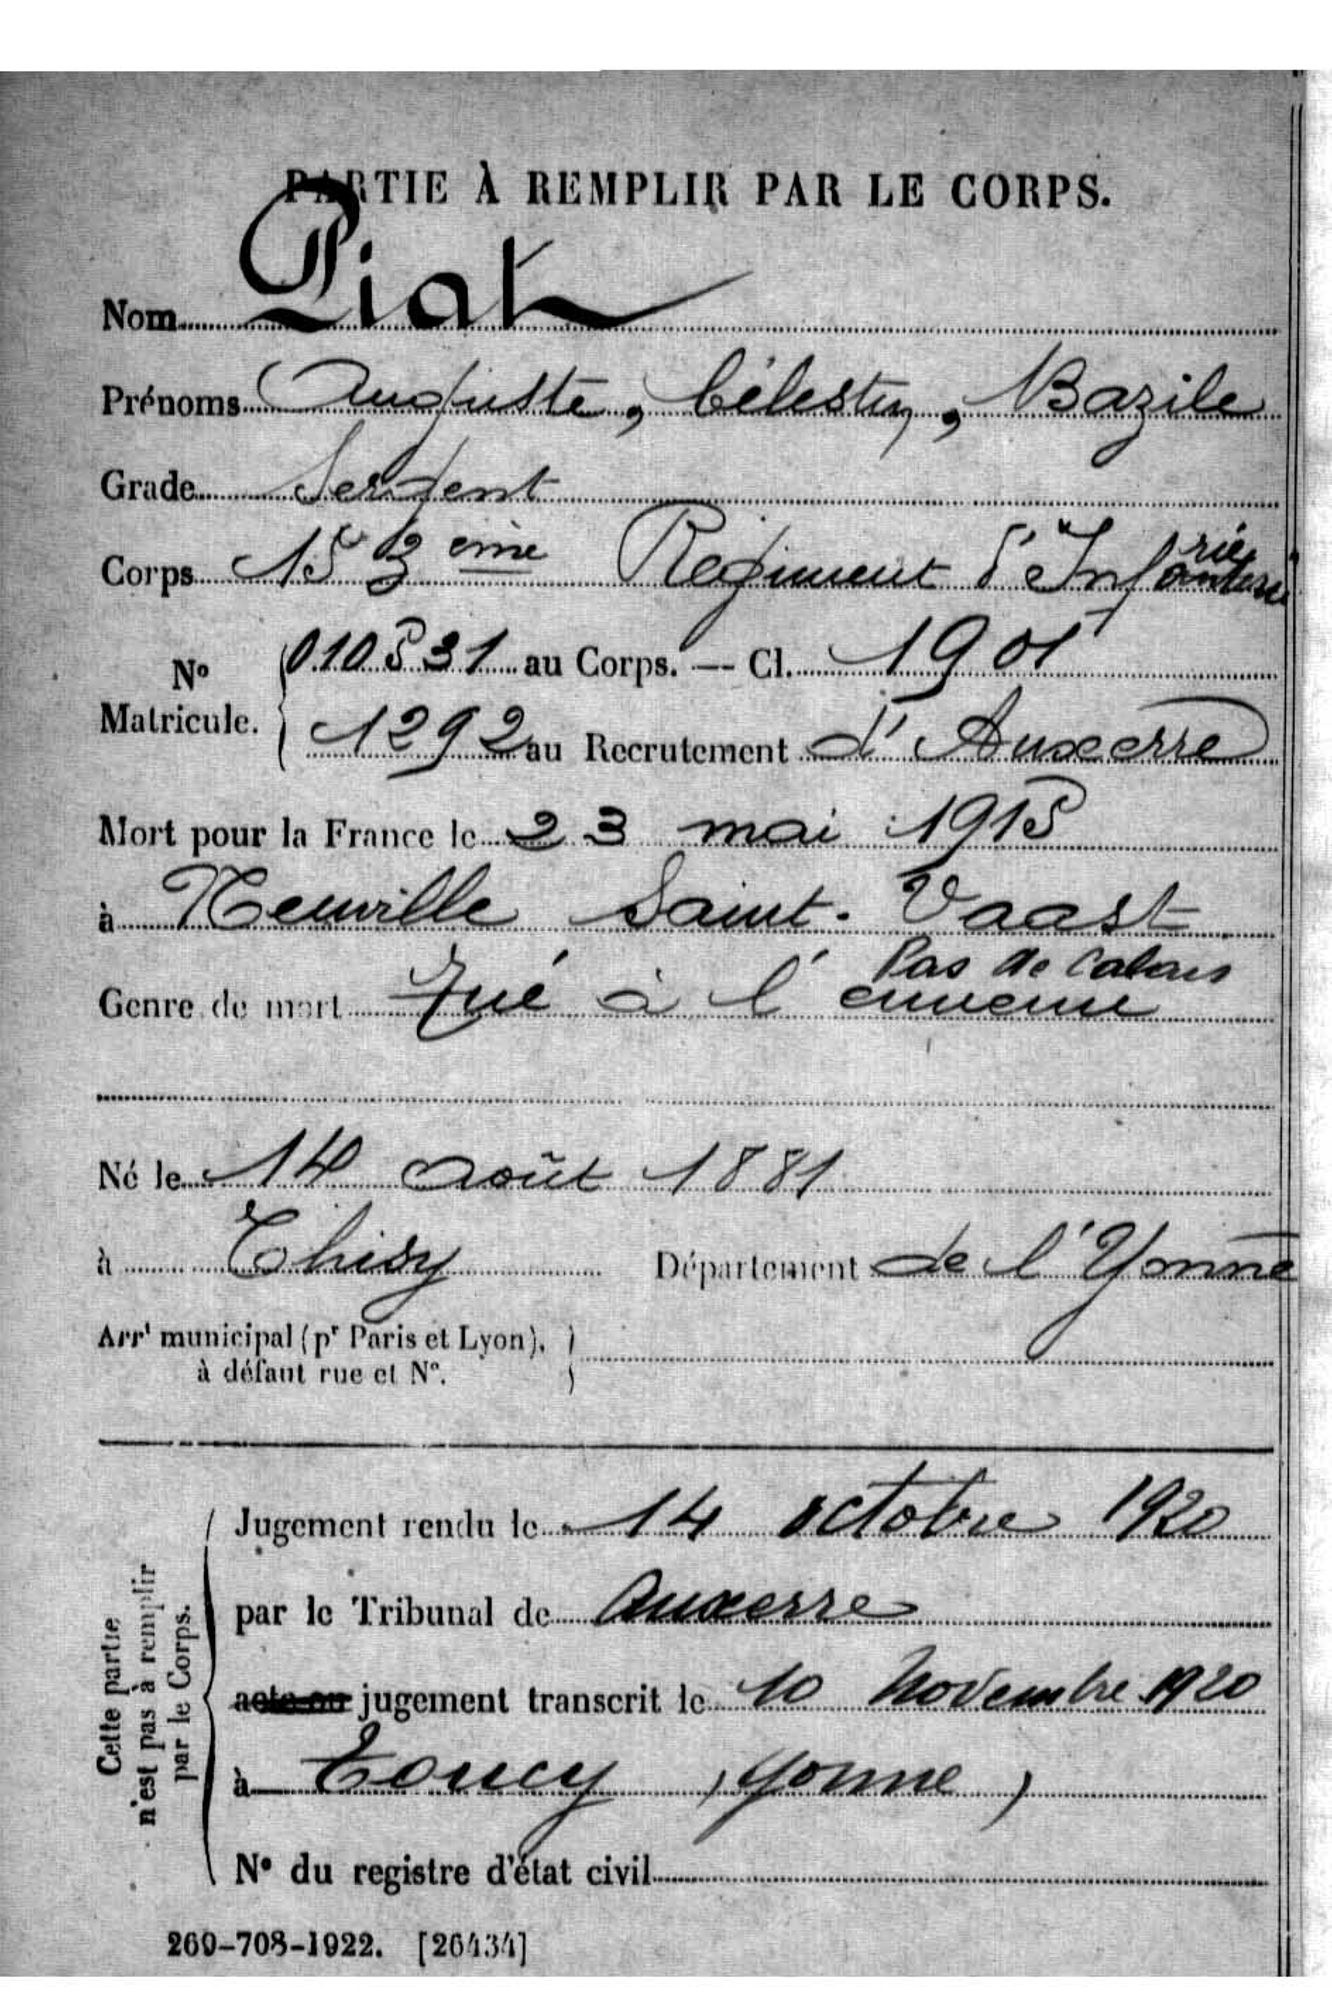 PARTIE À REMPLIR PAR LE CORPS.
Nom Piat
Prénoms Auguste, Célestin, Bazile
Grade Sergent
Corps 153ème Régiment d'Infanterie
No Matricule. 010531 au Corps. — Cl. 1901
1292 au Recrutement d'Auxerre
Mort pour la France le 23 mai 1915
à Neuville Saint-Vaast
Pas de Calais
Genre de mort Tué à l'ennemi
Né le 14 août 1881
à Thisy Département de l'Yonne
Arrt municipal (pr Paris et Lyon),
à défaut rue et N°.
Cette partie
n'est pas à remplir
par le Corps.
Jugement rendu le 14 octobre 1920
par le Tribunal de Auxerre
acte ou jugement transcrit le 10 Novembre 1920
à Toucy (Yonne)
N° du registre d'état civil
269-708-1922. [26434]